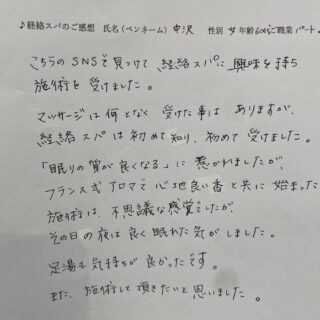 ♪経絡スパのご感想 氏名(ペンネーム) 中沢 性別 女 年齢 60代 ご職業 パート
こちらのSNSで見つけて経絡スパに興味を持ち
施術を受けました。
マッサージは何となく受けた事はありますが、
経絡スパは初めて知り、初めて受けました。
「眠りの質が良くなる」に惹かれましたが、
フランス式アロマで心地良い香と共に始まった
施術は、不思議な感覚でしたが、
その日の夜は良く眠れた気がしました。
足湯も気持ちが良かったです。
また、施術して頂きたいと思いました。